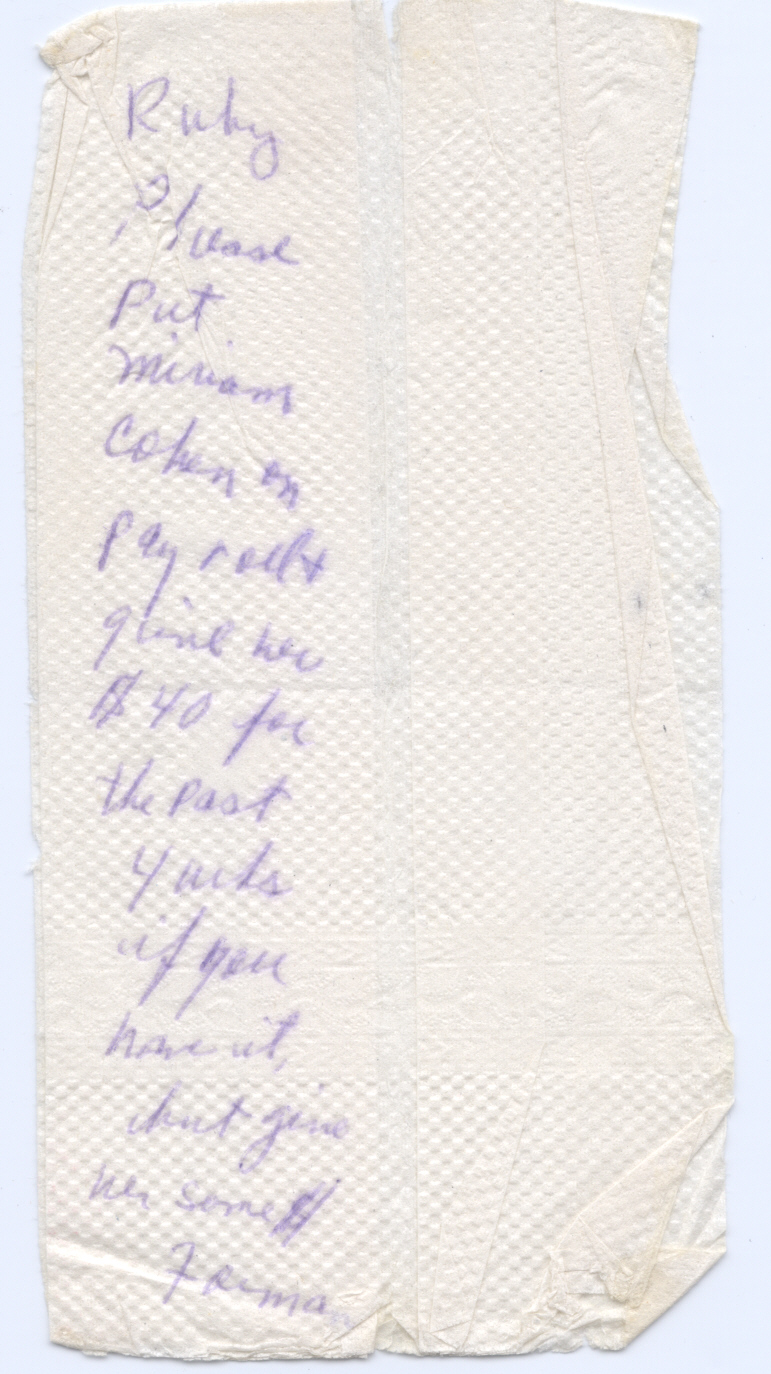 Ruby
Please
Put
Miriam
Cohen on
Payroll +
give her
$40 for
the past
4 wks
if you
have it,
but give
her some $
Forman